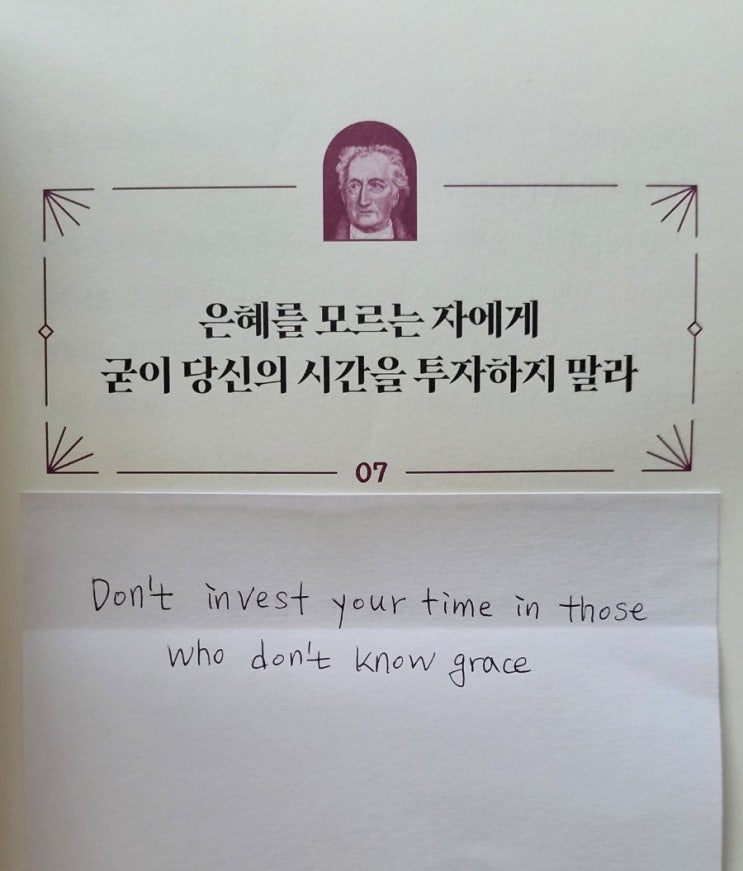 은혜를 모르는 자에게
굳이 당신의 시간을 투자하지 말라
07
Don't invest your time in those
who don't know grace